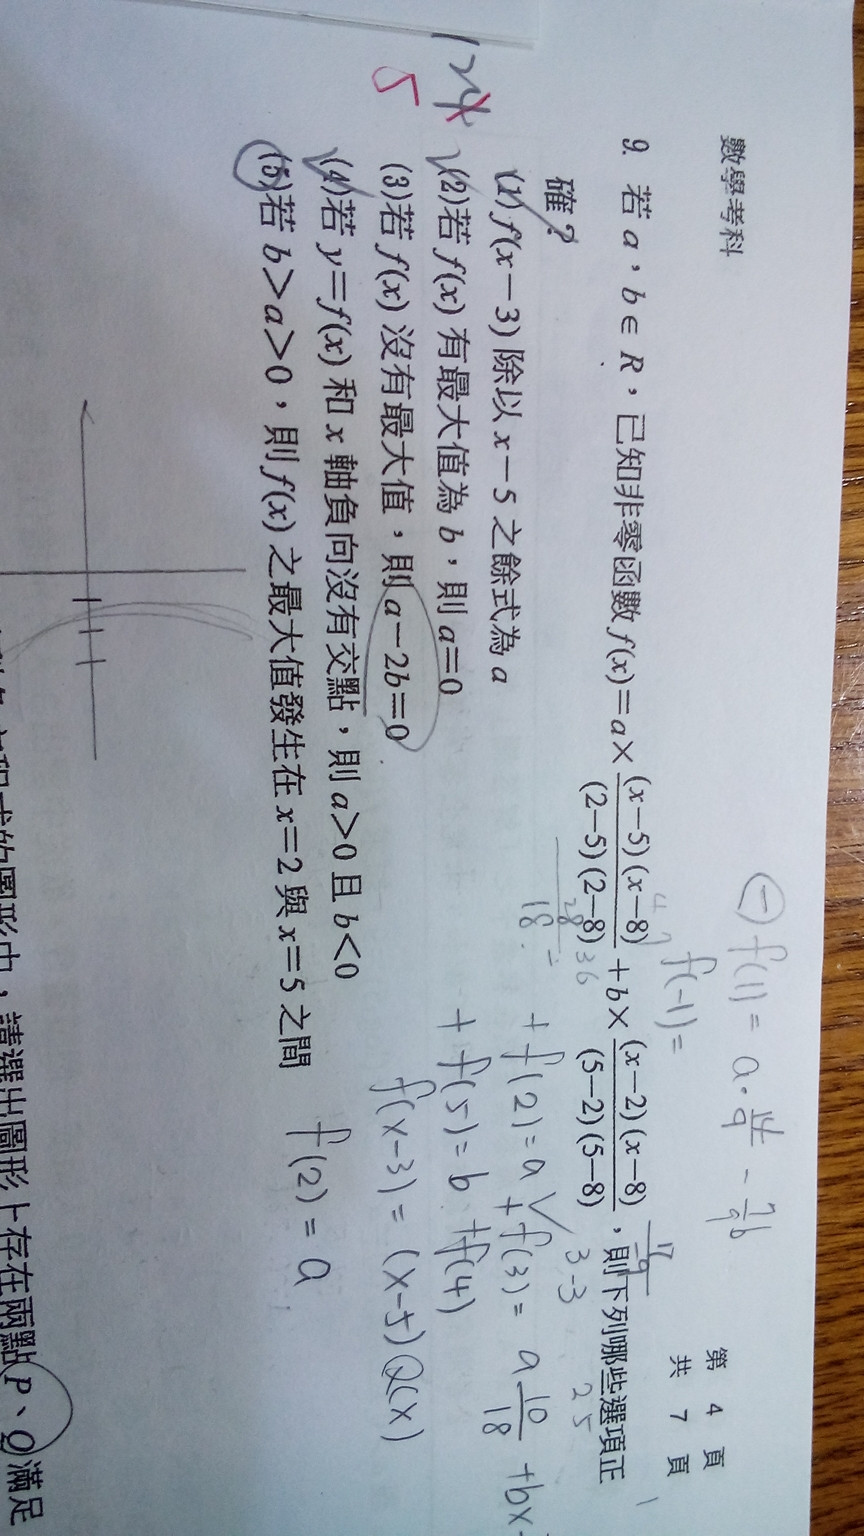 數學考科
第 4 頁
共 7 頁
㊀ f(1) = a·
f(-1) =
9. 若 a，b∈R，已知非零函數 f(x)=a×(x−5)(x−8)/(2−5)(2−8)+b×(x−2)(x−8)/(5−2)(5−8)，則下列哪些選項正
確？
(1) f(x−3) 除以 x−5 之餘式為 a
(2)若 f(x) 有最大值為 b，則 a=0
(3)若 f(x) 沒有最大值，則 a−2b=0
(4)若 y=f(x) 和 x 軸負向沒有交點，則 a>0 且 b<0
(5)若 b>a>0，則 f(x) 之最大值發生在 x=2 與 x=5 之間
124
5
28/18 =
36
3 -3
25
+ f(2) = a
+ f(3) = a 10/18 + bx
+ f(5) = b + f(4)
f(x-3) = (x-5) Q(x)
f(2) = a
圖形中，請選出圖形上存在兩點 P、Q 滿足